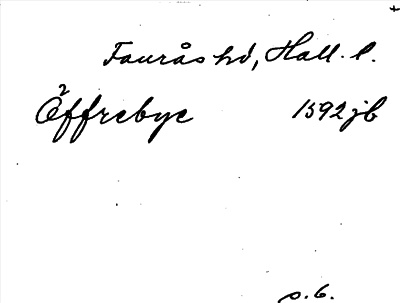 Faurås hd, Hall. l.
Öffrebye 1592 jb
s. 6.